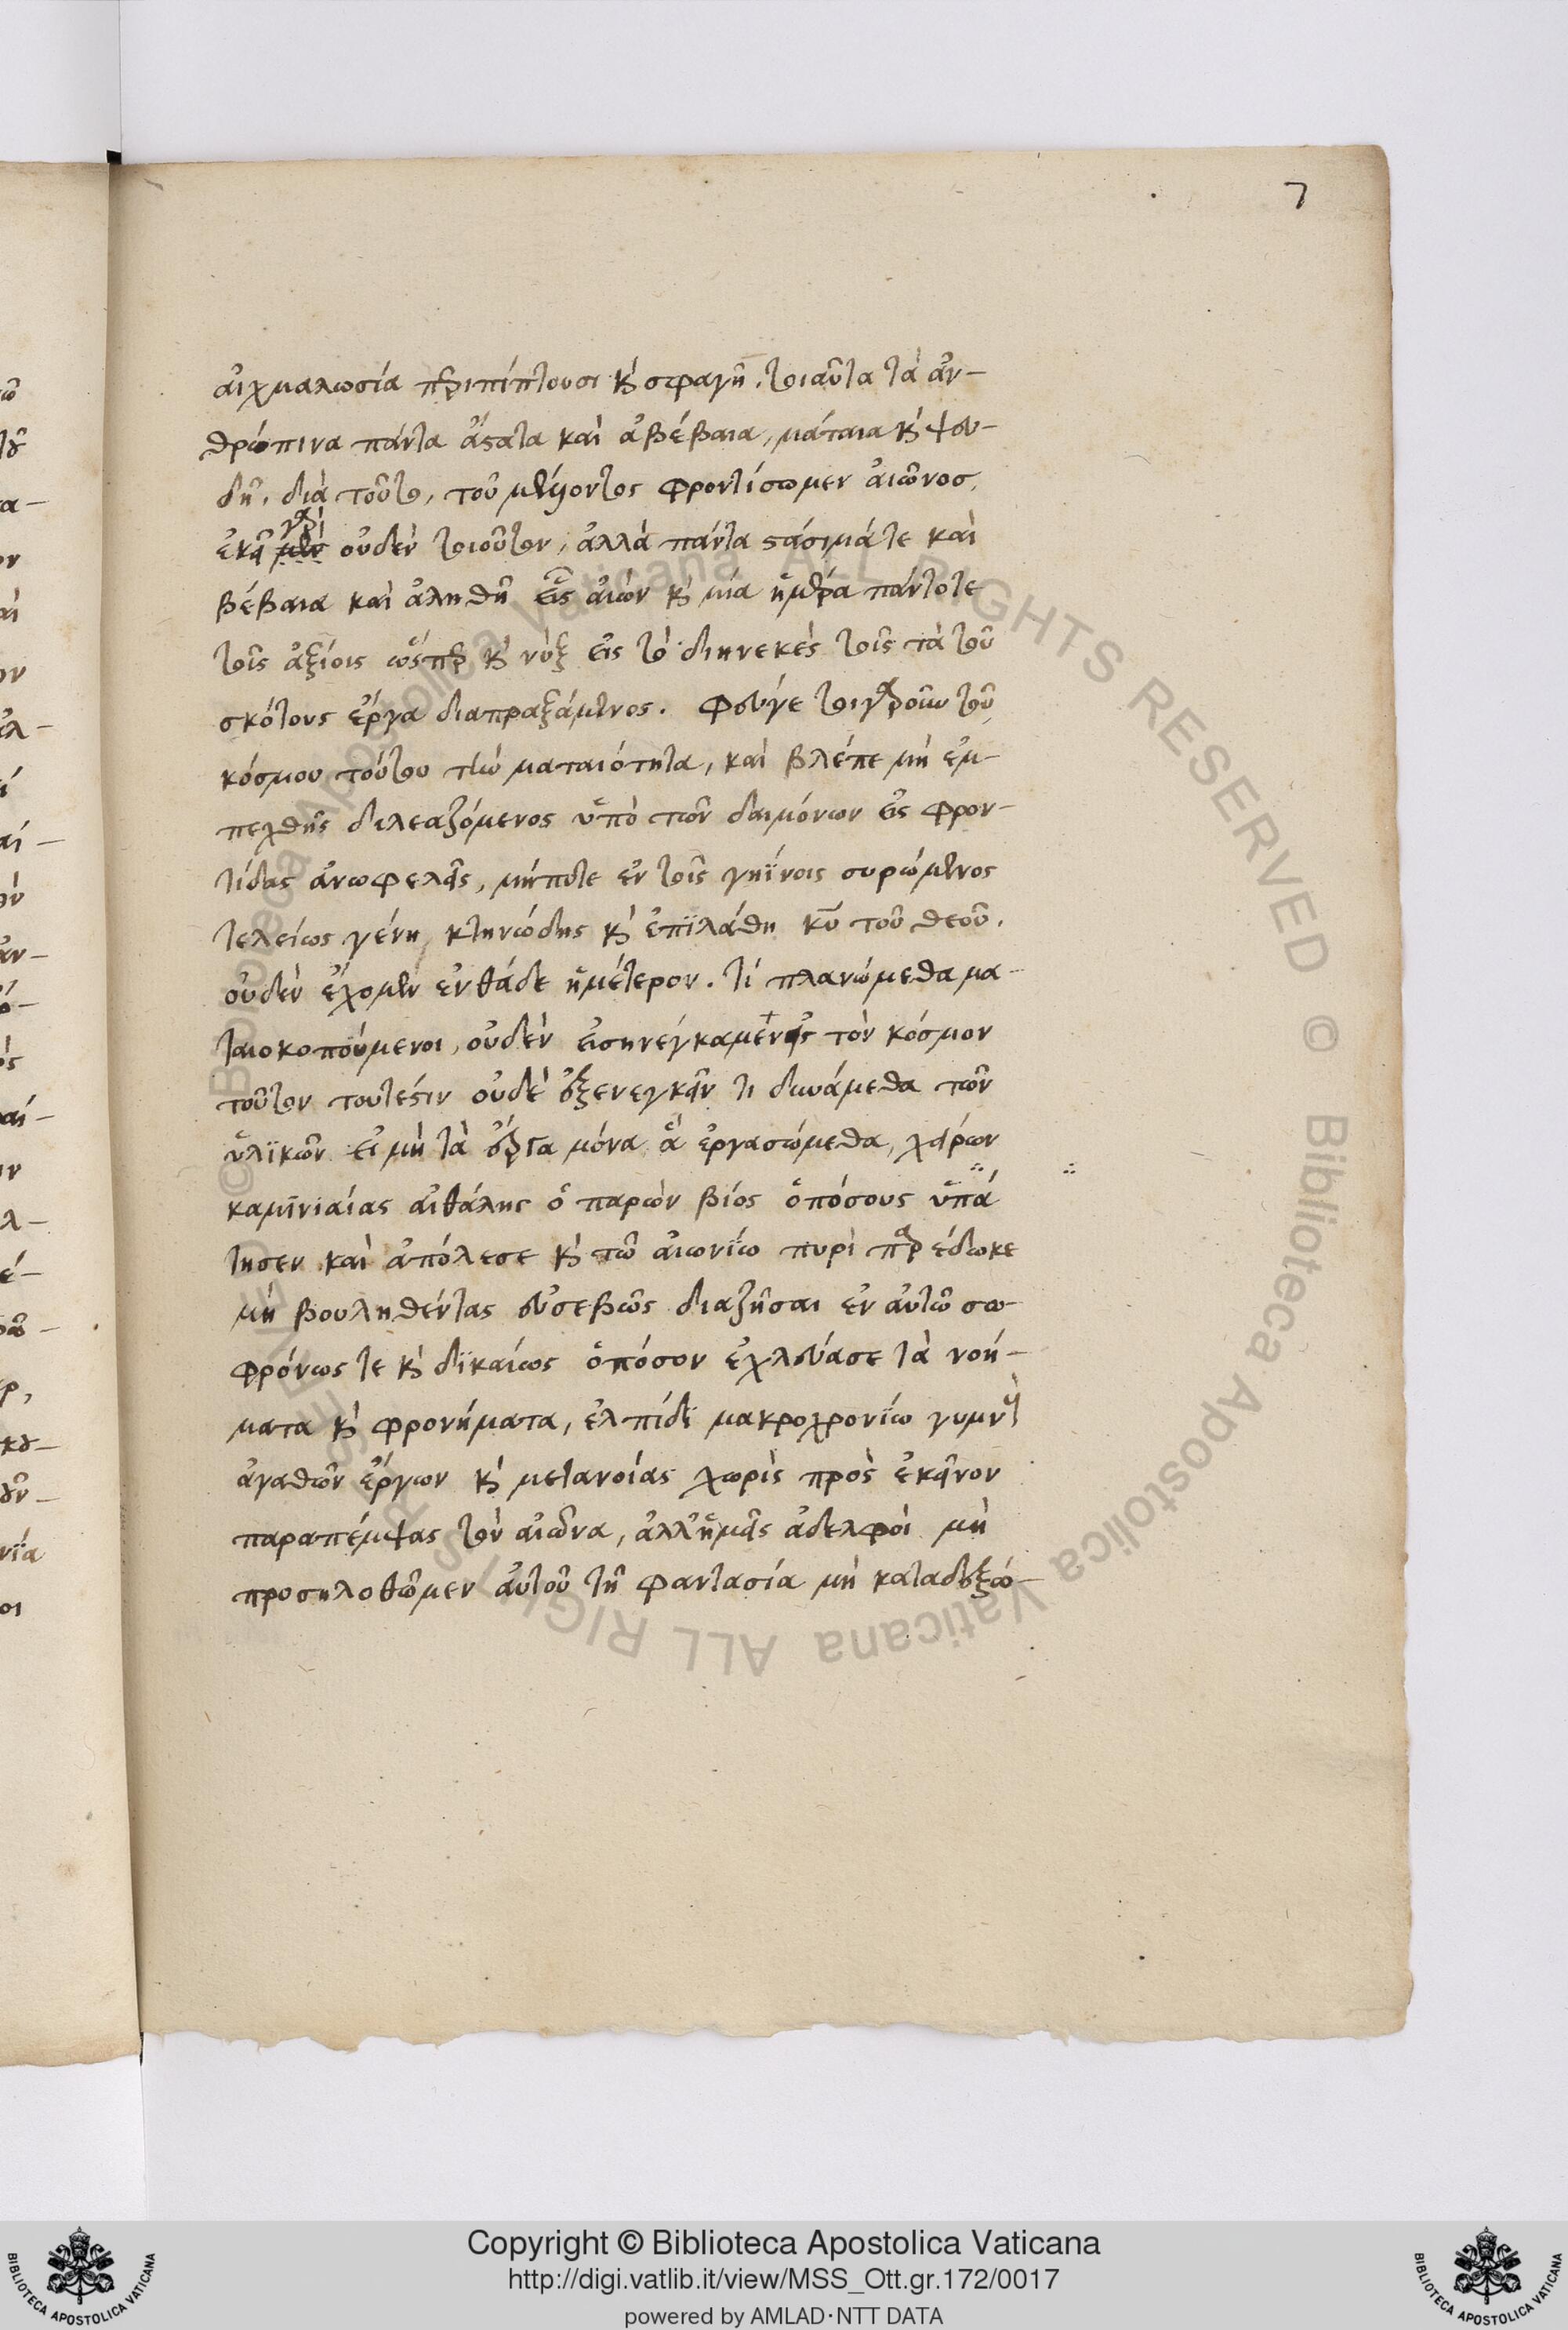 7
αἰχμαλωσία περιπίπτουσι καὶ σφαγῆ. τοιαῦτα τὰ ἀν-
θρώπινα πάντα ἄστατα καὶ ἀβέβαια, μάταια καὶ ψευ-
δῆ. διὰ τοῦτο, τοῦ μέλλοντος φροντίσωμεν αἰῶνος,
ἐκεῖ γὰρ οὐδὲν τοιοῦτον, ἀλλὰ πάντα στάσιμά τε καὶ
βέβαια καὶ ἀληθῆ εἷς αἰὼν καὶ μία ἡμέρα πάντοτε
τοῖς ἀξίοις ὥσπερ καὶ νὺξ εἰς τὸ διηνεκὲς τοῖς τὰ τοῦ
σκότους ἔργα διαπραξάμενος. Φεῦγε τοιγαροῦν τοῦ
κόσμου τούτου τὴν ματαιότητα, καὶ βλέπε μὴ ἐμ-
πεχθῆς διλεαζόμενος ὑπὸ τῶν δαιμόνων εἰς φρον-
τίδας ἀνωφελεῖς, μήποτε ἐν τοῖς γηΐνοις συρώμενος
τελείως γένη κτηνώδης καὶ ἐπϊλάθη κυ τοῦ θεοῦ.
οὐδὲν ἔχομεν ἐνθάδε ἡμέτερον. τί πλανώμεθα μα-
ταιοκοπούμενοι, οὐδὲν εἰσηνέγκαμεν εἰς τὸν κόσμον
τοῦτον τουτέστιν οὐδὲ ἐξενεγκεῖν τι δυνάμεθα τῶν
ὑλϊκῶν εἰ μὴ τὰ ἔργα μόνα ἃ ἐργασώμεθα, χείρων
καμϊνιαίας αἰθάλης ὁ παρὼν βίος ὁπόσους ὑπά
τησεν καὶ ἀπόλεσε καὶ τῶ αἰωνίω πυρὶ παρέδωκε
μὴ βουληθέντας εὐσεβῶς διαζῆσαι ἐν αὐτῶ σω-
φρόνως τε καὶ δϊκαίως ὁπόσον ἐχλεύασε τὰ νοή-
ματα καὶ φρονήματα, ἐλπίδϊ μακροχρονίω γυμνοὺ
ἀγαθῶν ἔργων καὶ μετανοίας χωρὶς πρὸς ἐκεῖνον
παραπέμψας τὸν αἰῶνα, ἀλλ' ἡμεῖς ἀδελφοὶ μὴ
προσηλοθῶμεν αὐτοῦ τῆ φαντασία μὴ καταδεξώ-
Copyright © Biblioteca Apostolica Vaticana
http://digi.vatlib.it/view/MSS_Ott.gr.172/0017
powered by AMLAD·NTT DATA